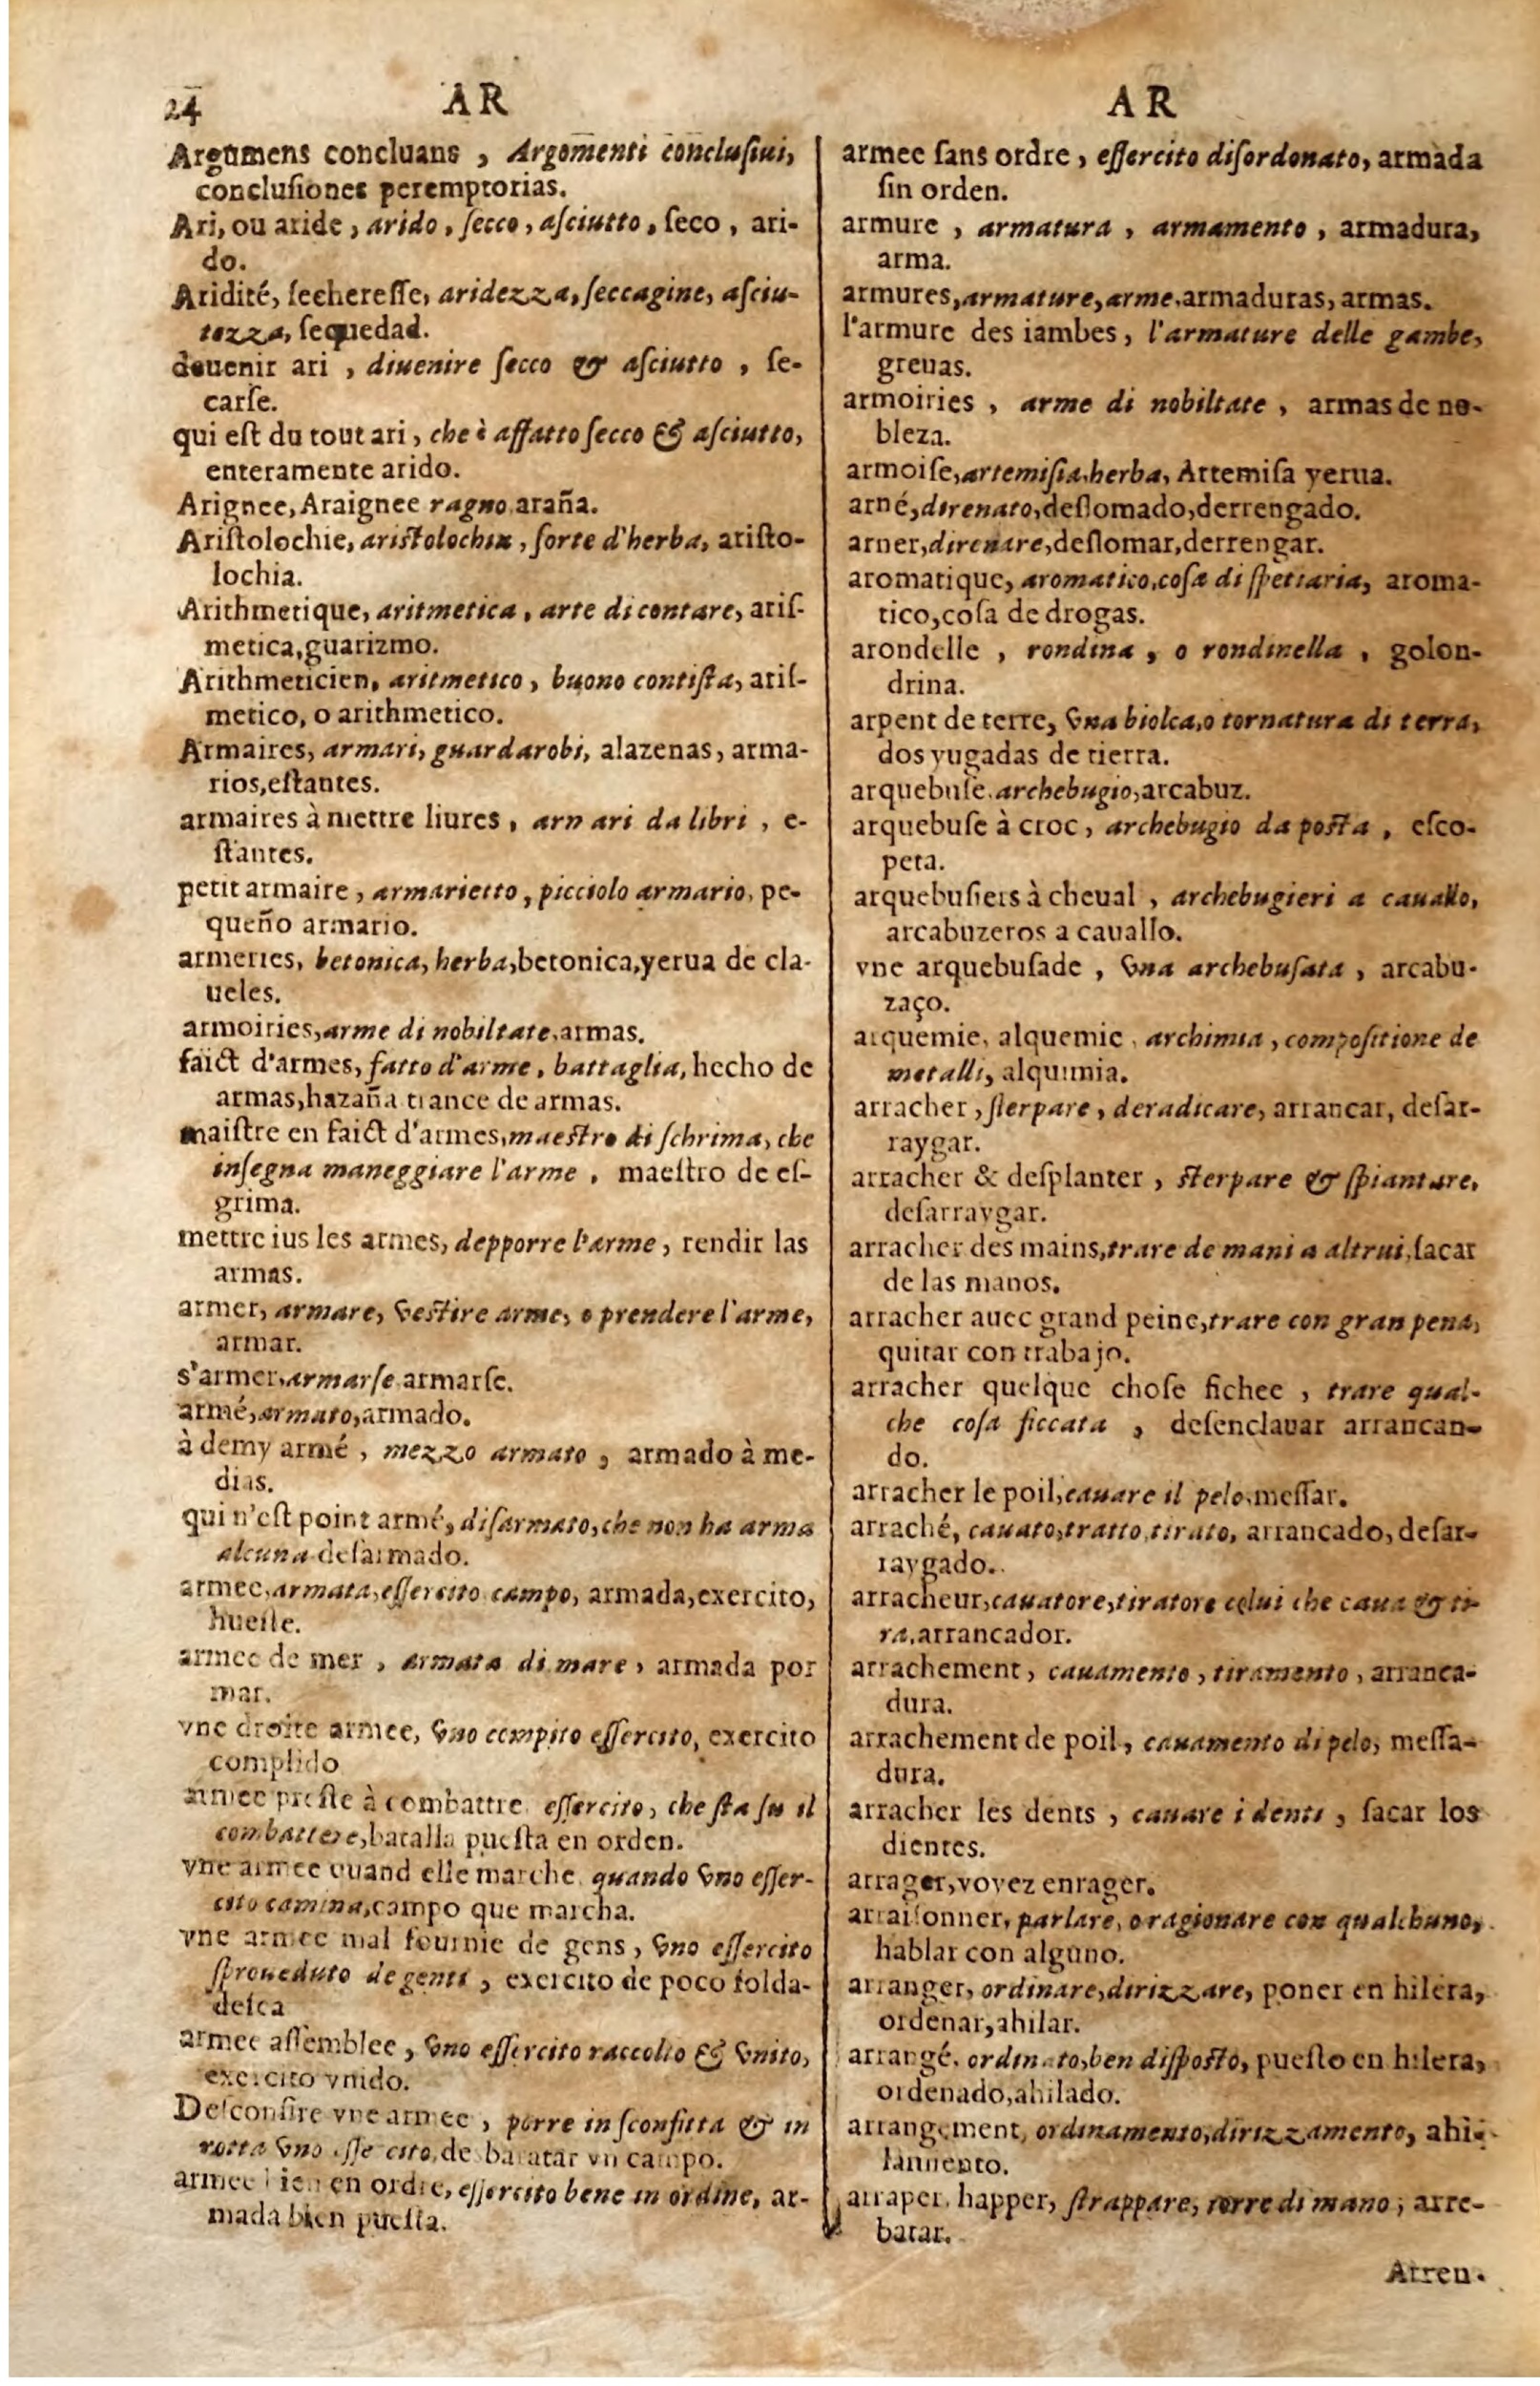 24 AR AR
Argumens concluans , Argomenti conclusiui,
conclusiones peremptorias.
Ari, ou aride , arido , ſecco , aſciutto , ſeco , ari-
do.
Aridité, ſechereſſe, aridezza, ſeccagine, aſciu-
tezza, ſequedad.
deuenir ari , diuenire ſecco & aſciutto , ſe-
carſe.
qui eſt du tout ari , che è affatto ſecco & aſciutto,
enteramente arido.
Arignee, Araignee ragno araña.
Ariſtolochie, ariſtolochia , ſorte d'herba, ariſto-
lochia.
Arithmetique, aritmetica , arte di contare, ariſ-
metica, guarizmo.
Arithmeticien, aritmetico , buono contiſta, ariſ-
metico, o arithmetico.
Armaires, armari, guardarobi, alazenas, arma-
rios, eſtantes.
armaires à mettre liures , armari da libri , e-
ſtantes.
petit armaire , armarietto , picciolo armario, pe-
queño armario.
armeries, betonica, herba, betonica, yerua de cla-
ueles.
armoiries, arme di nobiltate, armas.
faict d'armes, fatto d'arme , battaglia, hecho de
armas, hazaña trance de armas.
maiſtre en faict d'armes, maeſtro di ſchrima, che
inſegna maneggiare l'arme , maeſtro de eſ-
grima.
mettre ius les armes, depporre l'arme , rendir las
armas.
armer, armare, veſtire arme, o prendere l'arme,
armar.
s'armer, armarſe armarſe.
armé, armato, armado.
à demy armé , mezzo armato , armado à me-
dias.
qui n'eſt point armé, diſarmato, che non ha arma
alcuna deſarmado.
armee, armata, eſſercito campo, armada, exercito,
hueſte.
armee de mer , armata di mare , armada por
mar.
vne droite armee, vno compito eſſercito, exercito
complido
armee preſte à combattre, eſſercito, che ſta ſu il
combattere, batalla pueſta en orden.
vne armee quand elle marche, quando vno eſſer-
cito camina, campo que marcha.
vne armee mal fournie de gens , vno eſſercito
ſproueduto de genti , exercito de poco ſolda-
deſca
armee aſſemblee , vno eſſercito raccolto & vnito,
exercito vnido.
Deſconfire vne armee , porre in ſconfitta & in
rotta vno eſſercito, desbaratar vn campo.
armee bien en ordre, eſſercito bene in ordine, ar-
mada bien pueſta.
armee ſans ordre , eſſercito diſordonato, armada
ſin orden.
armure , armatura , armamento , armadura,
arma.
armures, armature, arme, armaduras, armas.
l'armure des iambes , l'armature delle gambe,
greuas.
armoiries , arme di nobiltate , armas de no-
bleza.
armoiſe, artemiſia, herba, Artemiſa yerua.
arné, direnato, deſlomado, derrengado.
arner, direnare, deſlomar, derrengar.
aromatique, aromatico, coſa di ſpetiaria, aroma-
tico, coſa de drogas.
arondelle , rondina , o rondinella , golon-
drina.
arpent de terre, vna biolca, o tornatura di terra,
dos yugadas de tierra.
arquebuſe, archebugio, arcabuz.
arquebuſe à croc , archebugio da poſta , eſco-
peta.
arquebuſiers à cheual , archebugieri a cauallo,
arcabuzeros a cauallo.
vne arquebuſade , vna archebuſata , arcabu-
zaço.
arquemie, alquemie , archimia , compoſitione de
metalli, alquimia.
arracher , ſterpare , deradicare, arrancar, deſar-
raygar.
arracher & deſplanter , ſterpare & ſpiantare,
deſarraygar.
arracher des mains, trare de mani a altrui, ſacar
de las manos.
arracher auec grand peine, trare con gran pena,
quitar con trabajo.
arracher quelque choſe fichee , trare qual-
che coſa ficcata , deſenclauar arrancan-
do.
arracher le poil, cauare il pelo, meſſar.
arraché, cauato, tratto, tirato, arrancado, deſar-
raygado.
arracheur, cauatore, tiratore celui che caua & ti-
ra, arrancador.
arrachement, cauamento , tiramento , arranca-
dura.
arrachement de poil , cauamento di pelo, meſſa-
dura.
arracher les dents , cauare i denti , ſacar los
dientes.
arrager, voyez enrager.
arraiſonner, parlare, o ragionare con qualchuno,
hablar con alguno.
arranger, ordinare, dirizzare, poner en hilera,
ordenar, ahilar.
arrangé, ordinato, ben diſpoſto, pueſto en hilera,
ordenado, ahilado.
arrangement, ordinamento, dirizzamento, ahi-
lamiento.
arraper, happer, ſtrappare, torre di mano ; arre-
batar.
Arreu.